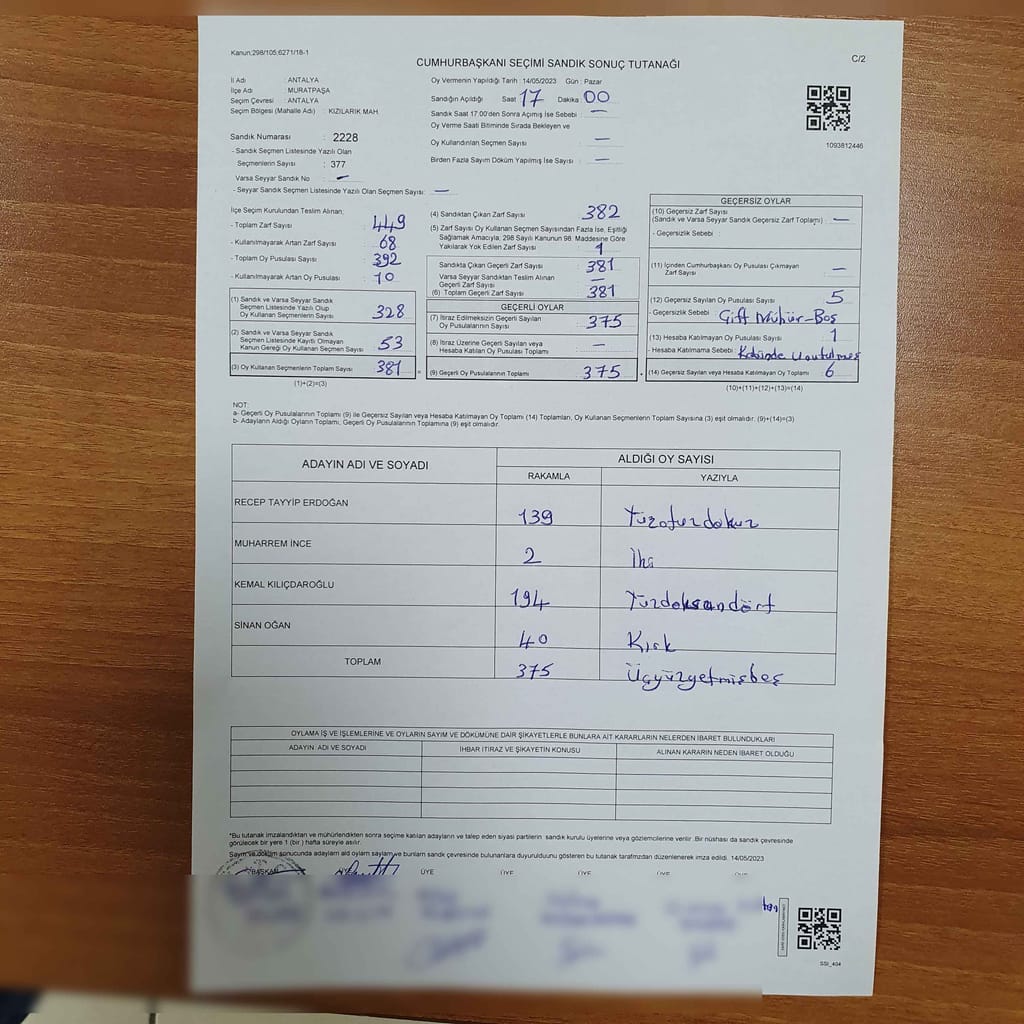 Kanun;298/105;6271/18-1
C/2
CUMHURBAŞKANI SEÇİMİ SANDIK SONUÇ TUTANAĞI
İl Adı : ANTALYA
İlçe Adı : MURATPAŞA
Seçim Çevresi : ANTALYA
Seçim Bölgesi (Mahalle Adı) : KIZILARIK MAH
Sandık Numarası : 2228
- Sandık Seçmen Listesinde Yazılı Olan
Seçmenlerin Sayısı : 377
Varsa Seyyar Sandık No : —
- Seyyar Sandık Seçmen Listesinde Yazılı Olan Seçmen Sayısı: —
Oy Vermenin Yapıldığı Tarih : 14/05/2023 Gün : Pazar
Sandığın Açıldığı Saat : 17 Dakika : 00
Sandık Saat 17.00'den Sonra Açımış İse Sebebi : —
Oy Verme Saati Bitiminde Sırada Bekleyen ve
Oy Kullandırılan Seçmen Sayısı : —
Birden Fazla Sayım Döküm Yapılmış İse Sayısı : —
1093812446
İlçe Seçim Kurulundan Teslim Alınan;
- Toplam Zarf Sayısı : 449
- Kullanılmayarak Artan Zarf Sayısı : 68
- Toplam Oy Pusulası Sayısı : 392
- Kullanılmayarak Artan Oy Pusulası : 10
(1) Sandık ve Varsa Seyyar Sandık
Seçmen Listesinde Yazılı Olup
Oy Kullanan Seçmenlerin Sayısı : 328
(2) Sandık ve Varsa Seyyar Sandık
Seçmen Listesinde Kayıtlı Olmayan
Kanun Gereği Oy Kullanan Seçmen Sayısı : 53
(3) Oy Kullanan Seçmenlerin Toplam Sayısı : 381
(1)+(2)=(3)
(4) Sandıktan Çıkan Zarf Sayısı : 382
(5) Zarf Sayısı Oy Kullanan Seçmen Sayısından Fazla İse, Eşitliği
Sağlamak Amacıyla, 298 Sayılı Kanunun 98. Maddesine Göre
Yakılarak Yok Edilen Zarf Sayısı : 1
Sandıkta Çıkan Geçerli Zarf Sayısı : 381
Varsa Seyyar Sandıktan Teslim Alınan
Geçerli Zarf Sayısı :
(6) Toplam Geçerli Zarf Sayısı : 381
GEÇERLİ OYLAR
(7) İtiraz Edilmeksizin Geçerli Sayılan
Oy Pusulalarının Sayısı : 375
(8) İtiraz Üzerine Geçerli Sayılan veya
Hesaba Katılan Oy Pusulası Toplamı : —
(9) Geçerli Oy Pusulalarının Toplamı : 375
GEÇERSİZ OYLAR
(10) Geçersiz Zarf Sayısı
(Sandık ve Varsa Seyyar Sandık Geçersiz Zarf Toplamı) : —
- Geçersizlik Sebebi :
(11) İçinden Cumhurbaşkanı Oy Pusulası Çıkmayan
Zarf Sayısı : —
(12) Geçersiz Sayılan Oy Pusulası Sayısı : 5
- Geçersizlik Sebebi : Çift Mühür-Boş
(13) Hesaba Katılmayan Oy Pusulası Sayısı : 1
- Hesaba Katılmama Sebebi : Kabinde Unutulmuş
(14) Geçersiz Sayılan veya Hesaba Katılmayan Oy Toplamı : 6
(10)+(11)+(12)+(13)=(14)
NOT:
a- Geçerli Oy Pusulalarının Toplamı (9) ile Geçersiz Sayılan veya Hesaba Katılmayan Oy Toplamı (14) Toplamları, Oy Kullanan Seçmenlerin Toplam Sayısına (3) eşit olmalıdır. (9)+(14)=(3)
b- Adayların Aldığı Oyların Toplamı, Geçerli Oy Pusulalarının Toplamına (9) eşit olmalıdır.
ADAYIN ADI VE SOYADI ALDIĞI OY SAYISI
RAKAMLA YAZIYLA
RECEP TAYYİP ERDOĞAN 139 Yüzotuzdokuz
MUHARREM İNCE 2 İki
KEMAL KILIÇDAROĞLU 194 Yüzdoksandört
SİNAN OĞAN 40 Kırk
TOPLAM 375 Üçyüzyetmişbeş
OYLAMA İŞ VE İŞLEMLERİNE VE OYLARIN SAYIM VE DÖKÜMÜNE DAİR ŞİKAYETLERLE BUNLARA AİT KARARLARIN NELERDEN İBARET BULUNDUKLARI
ADAYIN ADI VE SOYADI İHBAR İTİRAZ VE ŞİKAYETİN KONUSU ALINAN KARARIN NEDEN İBARET OLDUĞU
*Bu tutanak imzalandıktan ve mühürlendikten sonra seçime katılan adayların ve talep eden siyasi partilerin sandık kurulu üyelerine veya gözlemcilerine verilir. Bir nüshası da sandık çevresinde
görülecek bir yere 1 (bir ) hafta süreyle asılır.
Sayım ve döküm sonucunda adayların aldığı oyların sayılarını ve bunların sandık çevresinde bulunanlara duyurulduğunu gösteren bu tutanak tarafımızdan düzenlenerek imza edildi. 14/05/2023
BAŞKAN ÜYE ÜYE ÜYE ÜYE ÜYE
SSI_404